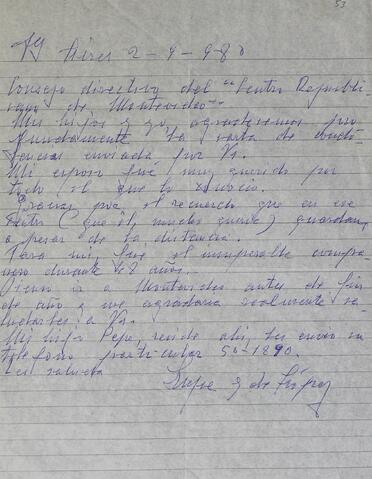 53
Bs Aires 2-9-980
Consejo directivo del "Centro Republi-
cano de Montevideo"
Mis hijos y yo, agradecemos pro-
fundamente la carta de condo-
lencias enviada por Vs.
Mi esposo fué muy querido por
todo el que lo conoció.
Gracias por el recuerdo que en ese
Centro (que él mucho quería) guardan,
a pesar de la distancia.
Para mi, fue el inseparable compa-
ñero durante 48 años.
Pienso ir a Montevideo antes de fin
de año y me agradaría realmente sa-
ludarles a Vs.
Mi hijo Pepe, reside allí, les envío su
teléfono particular 50-1890.
Les saluda
G. de López